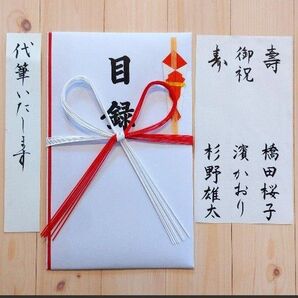 壽 橋田桜子
御祝 濱かおり
寿 杉野雄太
目録
代筆いたします